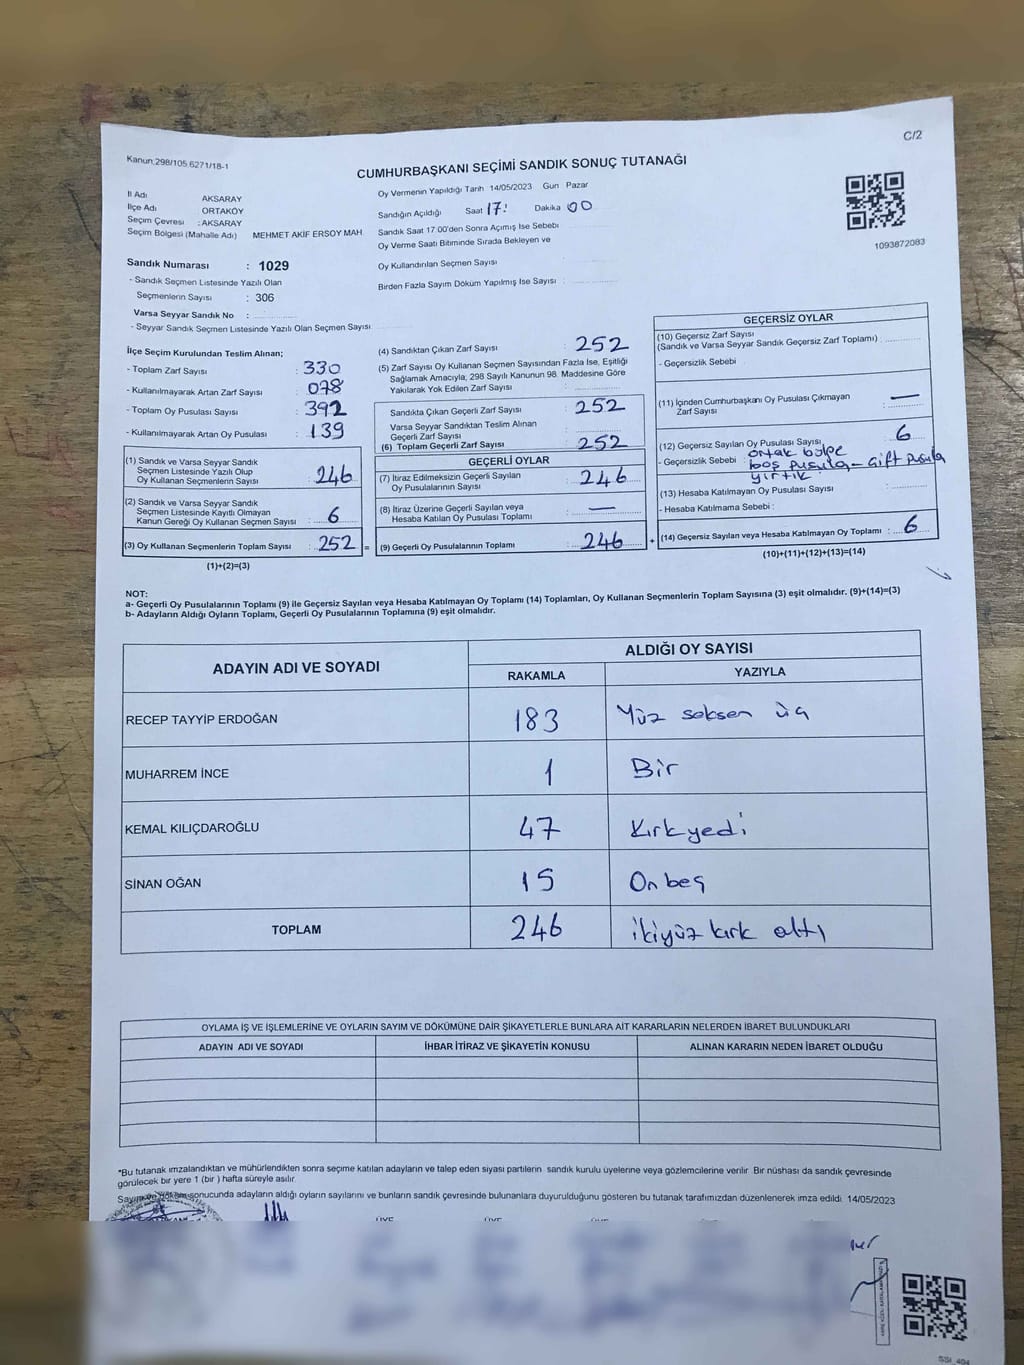 C/2
Kanun:298/105.6271/18-1
CUMHURBAŞKANI SEÇİMİ SANDIK SONUÇ TUTANAĞI
İl Adı AKSARAY
İlçe Adı ORTAKÖY
Seçim Çevresi : AKSARAY
Seçim Bölgesi (Mahalle Adı) MEHMET AKİF ERSOY MAH.
Sandık Numarası : 1029
- Sandık Seçmen Listesinde Yazılı Olan
Seçmenlerin Sayısı : 306
Varsa Seyyar Sandık No :
- Seyyar Sandık Seçmen Listesinde Yazılı Olan Seçmen Sayısı
Oy Vermenin Yapıldığı Tarih 14/05/2023 Gün Pazar
Sandığın Açıldığı Saat 17: Dakika 00
Sandık Saat 17.00'den Sonra Açımış İse Sebebi
Oy Verme Saati Bitiminde Sırada Bekleyen ve
Oy Kullandırılan Seçmen Sayısı
Birden Fazla Sayım Döküm Yapılmış İse Sayısı :
1093872083
İlçe Seçim Kurulundan Teslim Alınan;
- Toplam Zarf Sayısı : 330
- Kullanılmayarak Artan Zarf Sayısı : 078
- Toplam Oy Pusulası Sayısı : 392
- Kullanılmayarak Artan Oy Pusulası : 139
(1) Sandık ve Varsa Seyyar Sandık
Seçmen Listesinde Yazılı Olup
Oy Kullanan Seçmenlerin Sayısı : 246
(2) Sandık ve Varsa Seyyar Sandık
Seçmen Listesinde Kayıtlı Olmayan
Kanun Gereği Oy Kullanan Seçmen Sayısı : 6
(3) Oy Kullanan Seçmenlerin Toplam Sayısı : 252 =
(1)+(2)=(3)
(4) Sandıktan Çıkan Zarf Sayısı : 252
(5) Zarf Sayısı Oy Kullanan Seçmen Sayısından Fazla İse, Eşitliği
Sağlamak Amacıyla, 298 Sayılı Kanunun 98. Maddesine Göre
Yakılarak Yok Edilen Zarf Sayısı :
Sandıkta Çıkan Geçerli Zarf Sayısı : 252
Varsa Seyyar Sandıktan Teslim Alınan
Geçerli Zarf Sayısı :
(6) Toplam Geçerli Zarf Sayısı : 252
GEÇERLİ OYLAR
(7) İtiraz Edilmeksizin Geçerli Sayılan
Oy Pusulalarının Sayısı : 246
(8) İtiraz Üzerine Geçerli Sayılan veya
Hesaba Katılan Oy Pusulası Toplamı : —
(9) Geçerli Oy Pusulalarının Toplamı : 246 +
GEÇERSİZ OYLAR
(10) Geçersiz Zarf Sayısı
(Sandık ve Varsa Seyyar Sandık Geçersiz Zarf Toplamı) :
- Geçersizlik Sebebi
(11) İçinden Cumhurbaşkanı Oy Pusulası Çıkmayan
Zarf Sayısı : —
(12) Geçersiz Sayılan Oy Pusulası Sayısı 6
- Geçersizlik Sebebi ortak bölge
boş pusula - Çift pusula
yırtık
(13) Hesaba Katılmayan Oy Pusulası Sayısı :
- Hesaba Katılmama Sebebi :
(14) Geçersiz Sayılan veya Hesaba Katılmayan Oy Toplamı : 6
(10)+(11)+(12)+(13)=(14)
NOT:
a- Geçerli Oy Pusulalarının Toplamı (9) ile Geçersiz Sayılan veya Hesaba Katılmayan Oy Toplamı (14) Toplamları, Oy Kullanan Seçmenlerin Toplam Sayısına (3) eşit olmalıdır. (9)+(14)=(3)
b- Adayların Aldığı Oyların Toplamı, Geçerli Oy Pusulalarının Toplamına (9) eşit olmalıdır.
ADAYIN ADI VE SOYADI ALDIĞI OY SAYISI
RAKAMLA YAZIYLA
RECEP TAYYİP ERDOĞAN 183 Yüz seksen üç
MUHARREM İNCE 1 Bir
KEMAL KILIÇDAROĞLU 47 Kırkyedi
SİNAN OĞAN 15 On beş
TOPLAM 246 ikiyüz kırk altı
OYLAMA İŞ VE İŞLEMLERİNE VE OYLARIN SAYIM VE DÖKÜMÜNE DAİR ŞİKAYETLERLE BUNLARA AİT KARARLARIN NELERDEN İBARET BULUNDUKLARI
ADAYIN ADI VE SOYADI İHBAR İTİRAZ VE ŞİKAYETİN KONUSU ALINAN KARARIN NEDEN İBARET OLDUĞU
*Bu tutanak imzalandıktan ve mühürlendikten sonra seçime katılan adayların ve talep eden siyasi partilerin sandık kurulu üyelerine veya gözlemcilerine verilir. Bir nüshası da sandık çevresinde
görülecek bir yere 1 (bir ) hafta süreyle asılır.
Sayım ve döküm sonucunda adayların aldığı oyların sayılarını ve bunların sandık çevresinde bulunanlara duyurulduğunu gösteren bu tutanak tarafımızdan düzenlenerek imza edildi. 14/05/2023
ÜYE ÜYE ÜYE